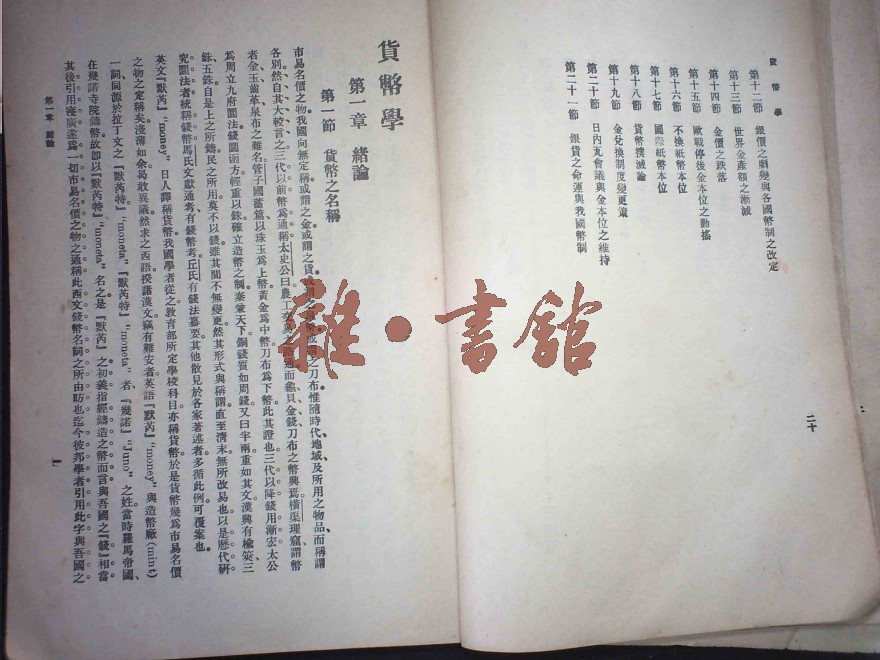 貨幣學
第十二節　銀價之劇變與各國幣制之改定
第十三節　世界金產額之漸減
第十四節　金價之跌落
第十五節　歐戰停後金本位之動搖
第十六節　不換紙幣本位
第十七節　國際紙幣本位
第十八節　貨幣撲滅論
第十九節　金兌換制度變更策
第二十節　日內瓦會議與金本位之維持
第二十一節　銀貨之命運與我國幣制
二十
貨幣學
第一章　緒論
第一節　貨幣之名稱
市易名價之物我國向無定稱或謂之金或謂之貨或謂之泉幣或謂之刀布惟隨時代、地域、及所用之物品而稱謂
各別然自其大較言之三代以前幣爲通稱太史公曰農工交易之路通而龜貝金錢刀布之幣興焉橫渠理窟謂幣
者金玉齒革泉布之雜名管子國蓄篇以珠玉爲上幣黃金爲中幣刀布爲下幣此其證也三代以降錢用漸宏太公
爲周立九府圜法錢圜函方輕重以銖確立造幣之制秦兼天下銅錢質如周錢文曰半兩重如其文漢興有楡莢三
銖五銖自是上之所鑄民之所用莫不以錢雖其間不無變更然其形式與稱謂直至清末無所改易也以是歷代研
究圜法者統稱錢幣馬氏文獻通考有錢幣考丘氏有錢法纂要其他散見於各家著述者多循此例可覆案也。
英文『默芮』"money"日人譯稱貨幣我國學者從之教育部所定學校科目亦稱貨幣於是貨幣幾爲市易名價
之物之定稱矣淺薄如余曷敢異議然求之西語揆諸漢文竊有難安者英語『默芮』"money"與造幣廠(mint)
一詞同源於拉丁文之『默芮特』"moneta"『默芮特』"moneta"者『幾諾』"Juno"之姓當時羅馬帝國、
在幾諾寺院鑄幣故卽以『默芮特』"moneta"名之是『默芮』之初義指經鑄造之幣而言與吾國之『錢』相當
其後引用寖廣遂爲一切市易名價之物之通稱此西文錢幣名詞之所由昉也迄今彼邦學者引用此字與吾國之
第一章　緒論
一
雜·書館